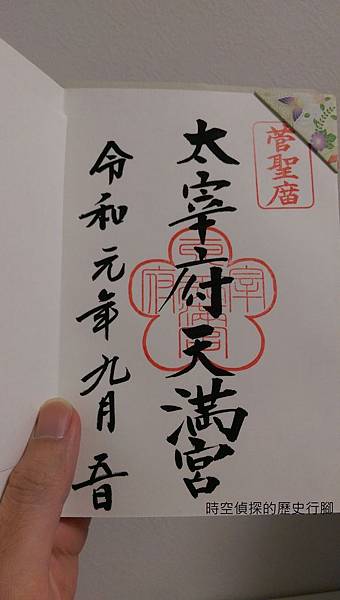 菅聖廟
太宰府天満宮
令和元年九月五日
時空偵探的歷史行腳